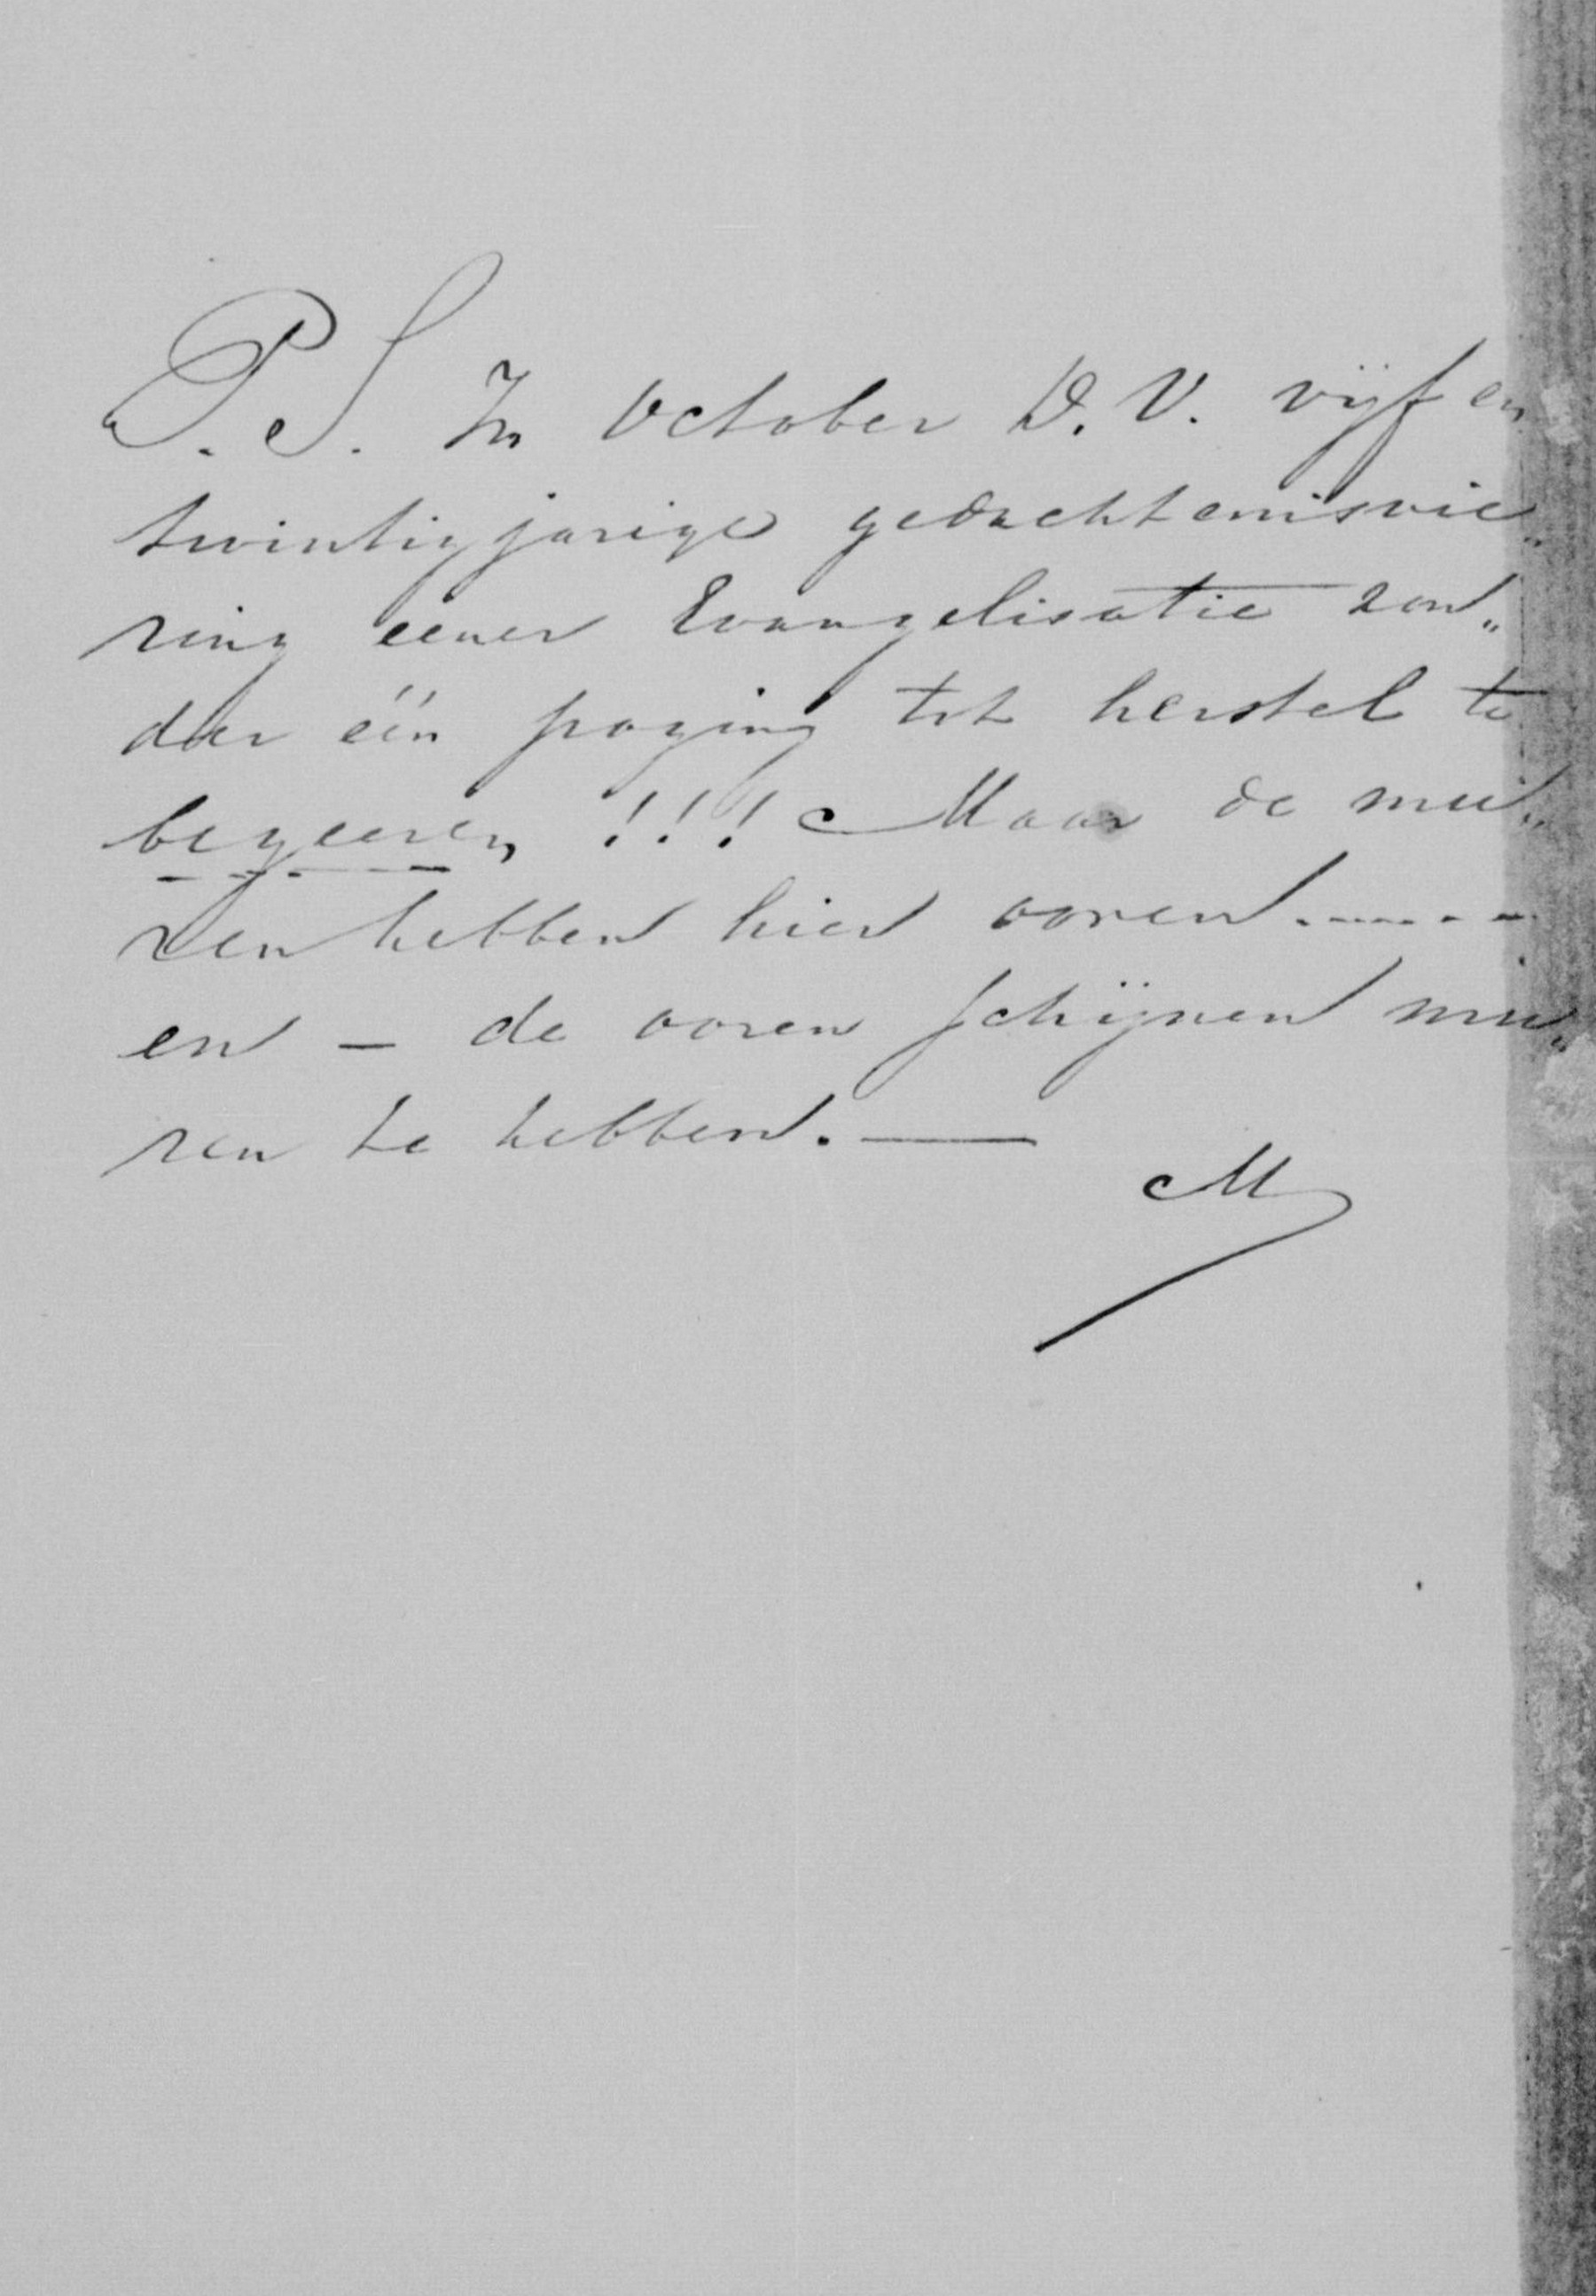 P. S. In October D. V. vijf en
twintigjarige gedachtenisvie„
ring eener Evangelisatie zon„
der één poging tot herstel te
begeeren !!! Maar de mu„
ren hebben hier ooren.------
en - de ooren schijnen mu„
ren te hebben. —
M